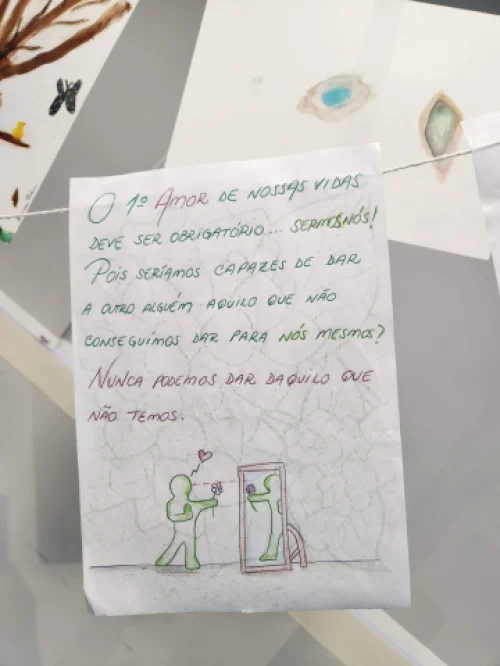 O 1º AMOR DE NOSSAS VIDAS
DEVE SER OBRIGATÓRIO... SERMOS NÓS!
POIS SERÍAMOS CAPAZES DE DAR
A OUTRO ALGUÉM AQUILO QUE NÃO
CONSEGUIMOS DAR PARA NÓS MESMOS?
NUNCA PODEMOS DAR DAQUILO QUE
NÃO TEMOS.